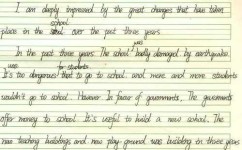 I am deeply impressed by the great changes that have taken
school
place in the over the past three years.
was
In the past three years. The school badly damaged by earthquake.
was for students
It's too dangerous that to go to school. and more and more students
wouldn't go to school. However In favor of governments, The goverments
offer money to school. It's useful to build a new school. The
new teaching buildings and new play-ground was building in three years